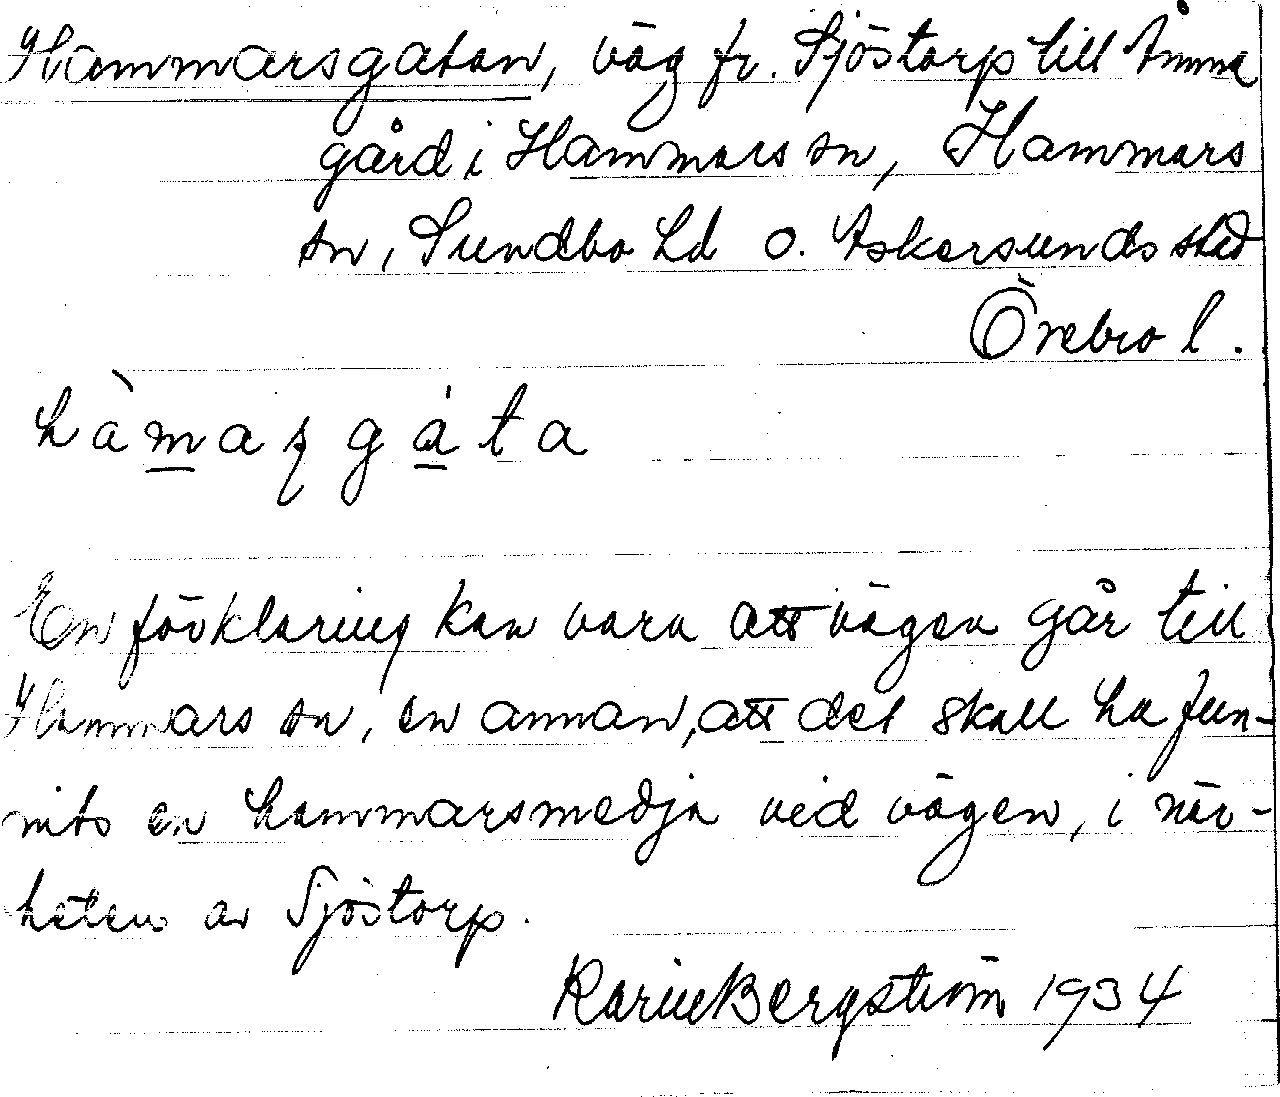 Hammarsgatan, väg fr. Sjöstorp till Åmma
gård i Hammars sn, Hammars
sn, Sundbo hd o. Askersunds stad
Örebro l.
hàmaʂgáta
En förklaring kan vara att vägen går till
Hammars sn, en annan, att det skall ha fun-
nits en hammarsmedja vid vägen, i när-
heten av Sjöstorp.
Karin Bergström 1934